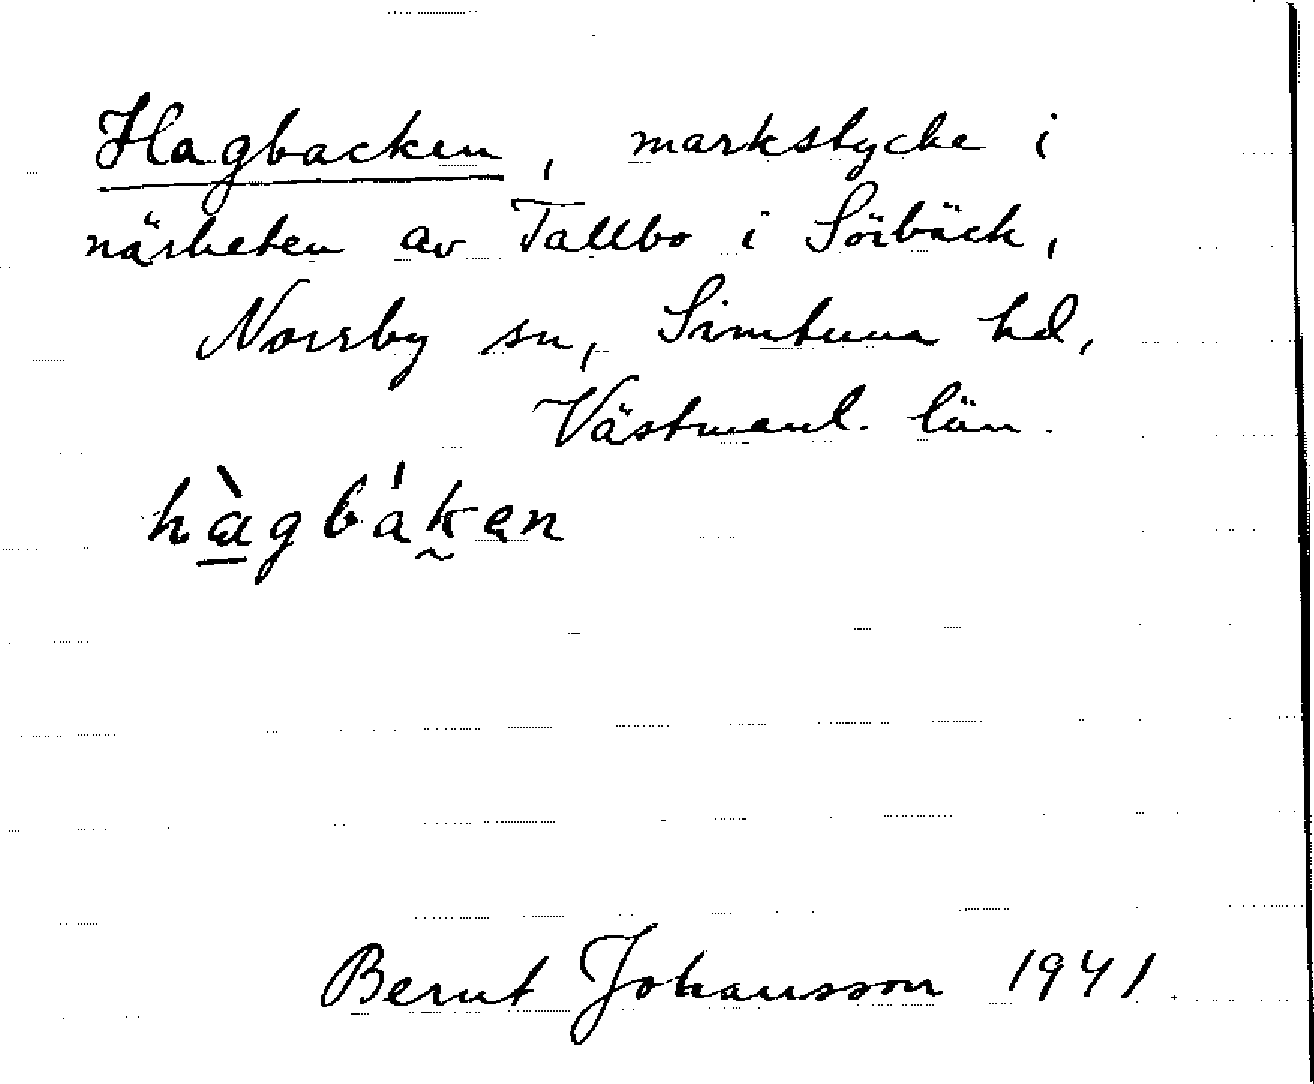 Hagbacken, markstycke i
närheten av Tallbo i Sörbäck,
Norrby sn, Simtuna hd,
Västmanl. län.
hàgbákən
Bernt Johansson 1941